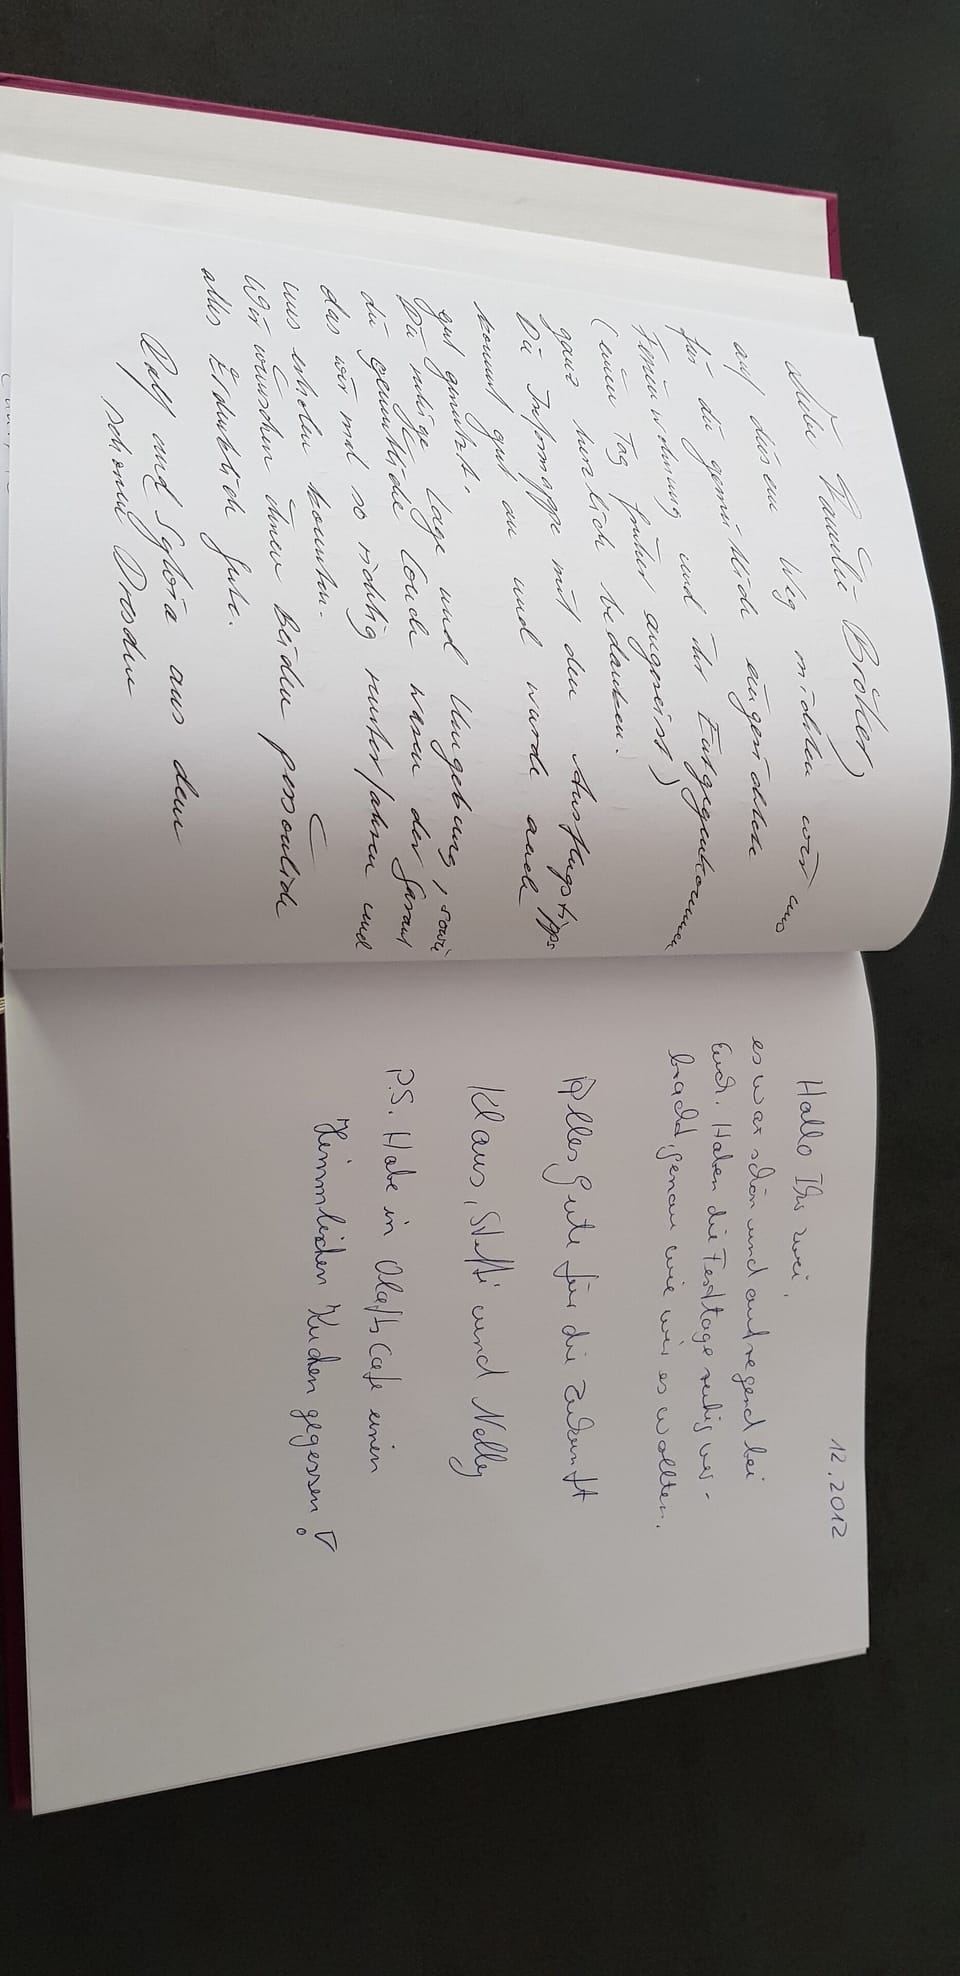 Liebe Familie Bröker,
auf diesem Weg möchten wir uns
für die gemütlich eingerichtete
Ferienwohnung und ihr Entgegenkommen
(einen Tag früher angereist)
ganz herzlich bedanken.
Die Infomappe mit den Ausflugstipps
kommt gut an und wurde auch
gut genutzt.
Die ruhige Lage und Umgebung, sowie
die gemütliche Couch waren der Garant
das wir mal so richtig runterfahren und
uns erholen konnten.
Wir wünschen Ihnen beiden persönlich
alles Erdenklich Gute.
und Sylvia aus dem
schönen Dresden
12.2012
Hallo Ihr zwei,
es war schön und aufregend bei
Euch. Haben die Festtage ruhig ver-
bracht, genau wie wir es wollten.
Alles Gute für die Zukunft
Klaus, Steffi und Nelly
P.S. Habe in Olafs Cafe einen
Himmlischen Kuchen gegessen!